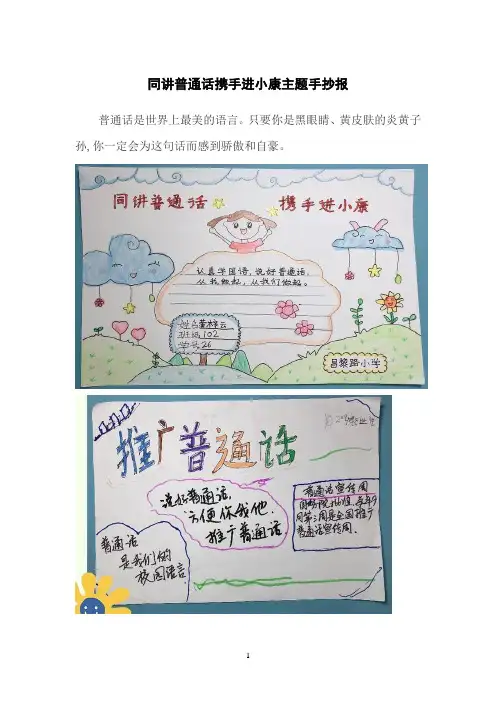 同讲普通话携手进小康主题手抄报
普通话是世界上最美的语言。只要你是黑眼睛、黄皮肤的炎黄子
孙,你一定会为这句话而感到骄傲和自豪。
同讲普通话 携手进小康
认真学国语,说好普通话,
从我做起,从我们做起。
班级102
学号26
昌黎路小学
推广普通话
说好普通话,
方便你我他.
推广普通话
普通话宣传周
每年9
月第三周是全国推广
普通话宣传周.
普通话
是我们的
校园语言
1